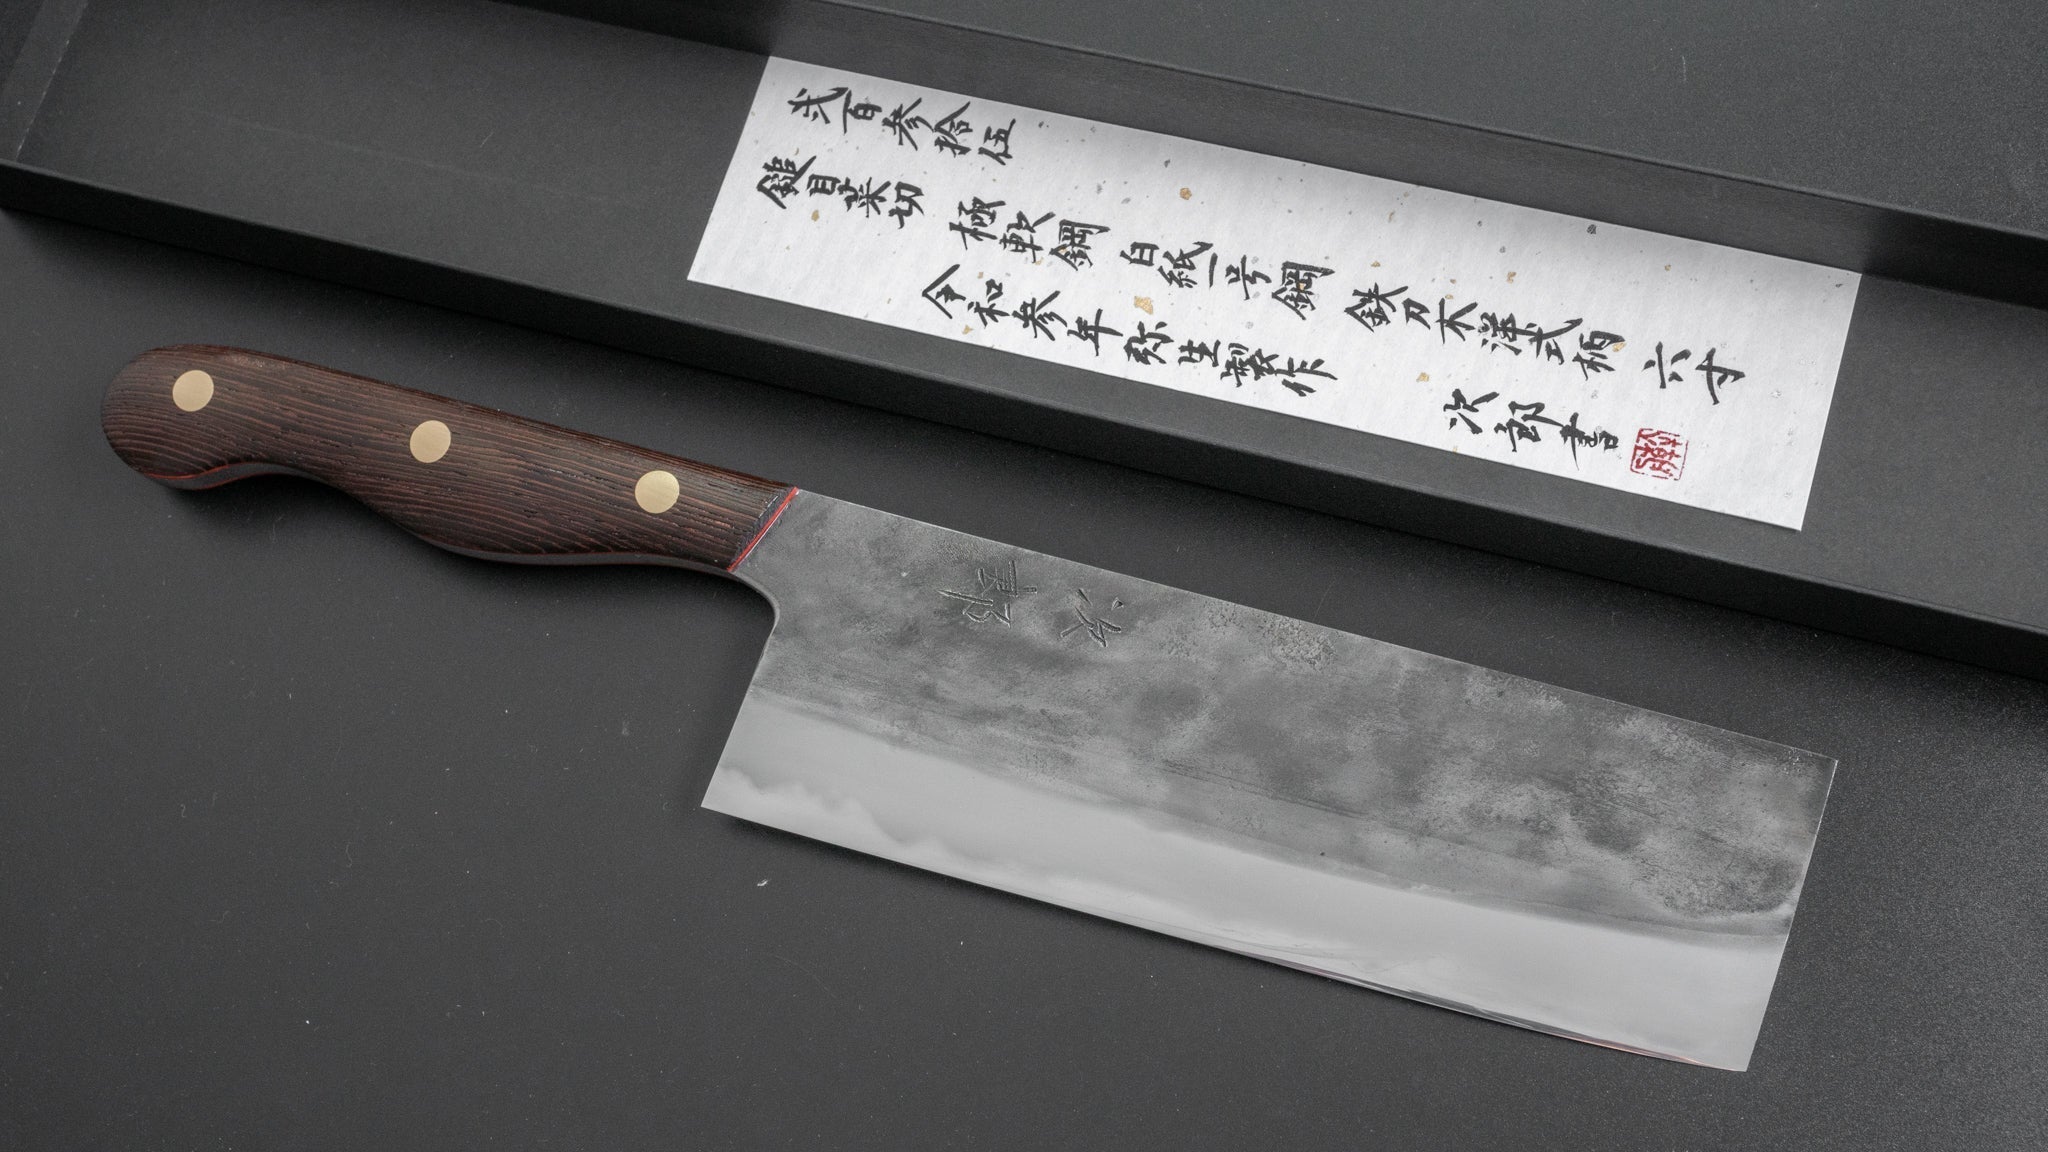 弐百参拾伍
鎚目菜切 極軟鋼 白紙一号鋼 鉄刀木洋式柄 六寸
令和参年弥生製作 次郎書
次郎